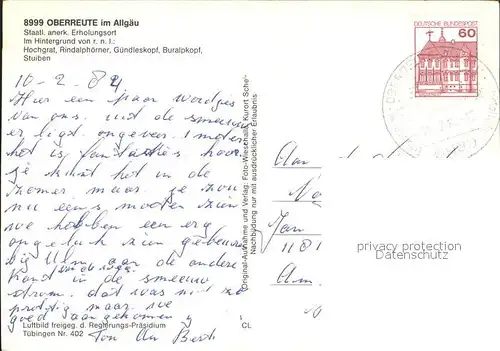 8999 OBERREUTE im Allgäu
Staatl. anerk. Erholungsort
Im Hintergrund von r. n. l.:
Hochgrat, Rindalphörner, Gündleskopf, Buralpkopf,
Stuiben
DEUTSCHE BUNDESPOST
60
10-2-84
Hier een paar woordjes
van ons. uit de sneeuw
er ligt ongeveer 1 meter
het is fantasties hoor
je kunt het in de
zomer maar je zou
nu eens moeten zien
we hebben een erg
ongeluk zien gebeuren
bij Ulm aan de andere
kant in de sneeuw
storm. dat was niet zo
prettig maar we
goed aangekomen
Ton An Bert
Original-Aufnahme und Verlag: Foto-Wiesehalla, Kurort Schei-
Nachbildung nur mit ausdrücklicher Erlaubnis
Aan
Jan
1181
Am
privacy protection
Datenschutz
Luftbild freigeg. d. Regierungs-Präsidium
Tübingen Nr. 402
CL